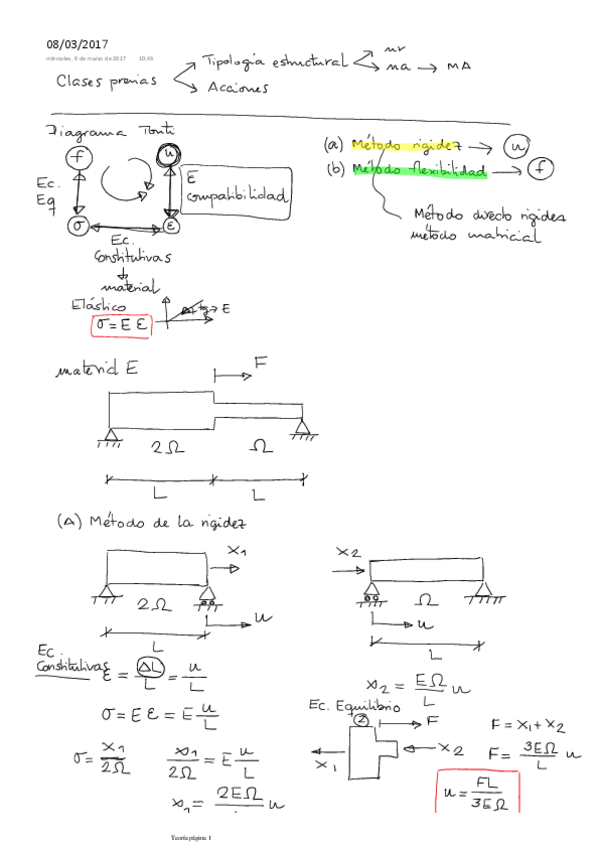 08/03/2017
miércoles, 8 de marzo de 2017 10:45
Clases previas
Tipología estructural
Acciones
na → MA
Diagrama Tonti
f
u
Ec.
Eq
E
compatibilidad
σ
ε
Ec.
Constitutivas
material
Elástico
σ = E ε
E
(a) Método rigidez → u
(b) Método flexibilidad → f
Método directo rigidez
método matricial
material E
F
2Ω
Ω
L
L
(A) Método de la rigidez
X1
2Ω
u
L
X2
Ω
u
L
Ec.
Constitutivas
ε = ΔL/L = u/L
σ = E ε = E u/L
σ = X1/2Ω
X1/2Ω = E u/L
X1 = 2EΩ/L u
X2 = EΩ/L u
Ec. Equilibrio
2
F
X1
X2
F = X1 + X2
F = 3EΩ/L u
u = FL/3EΩ
Teoría página 1